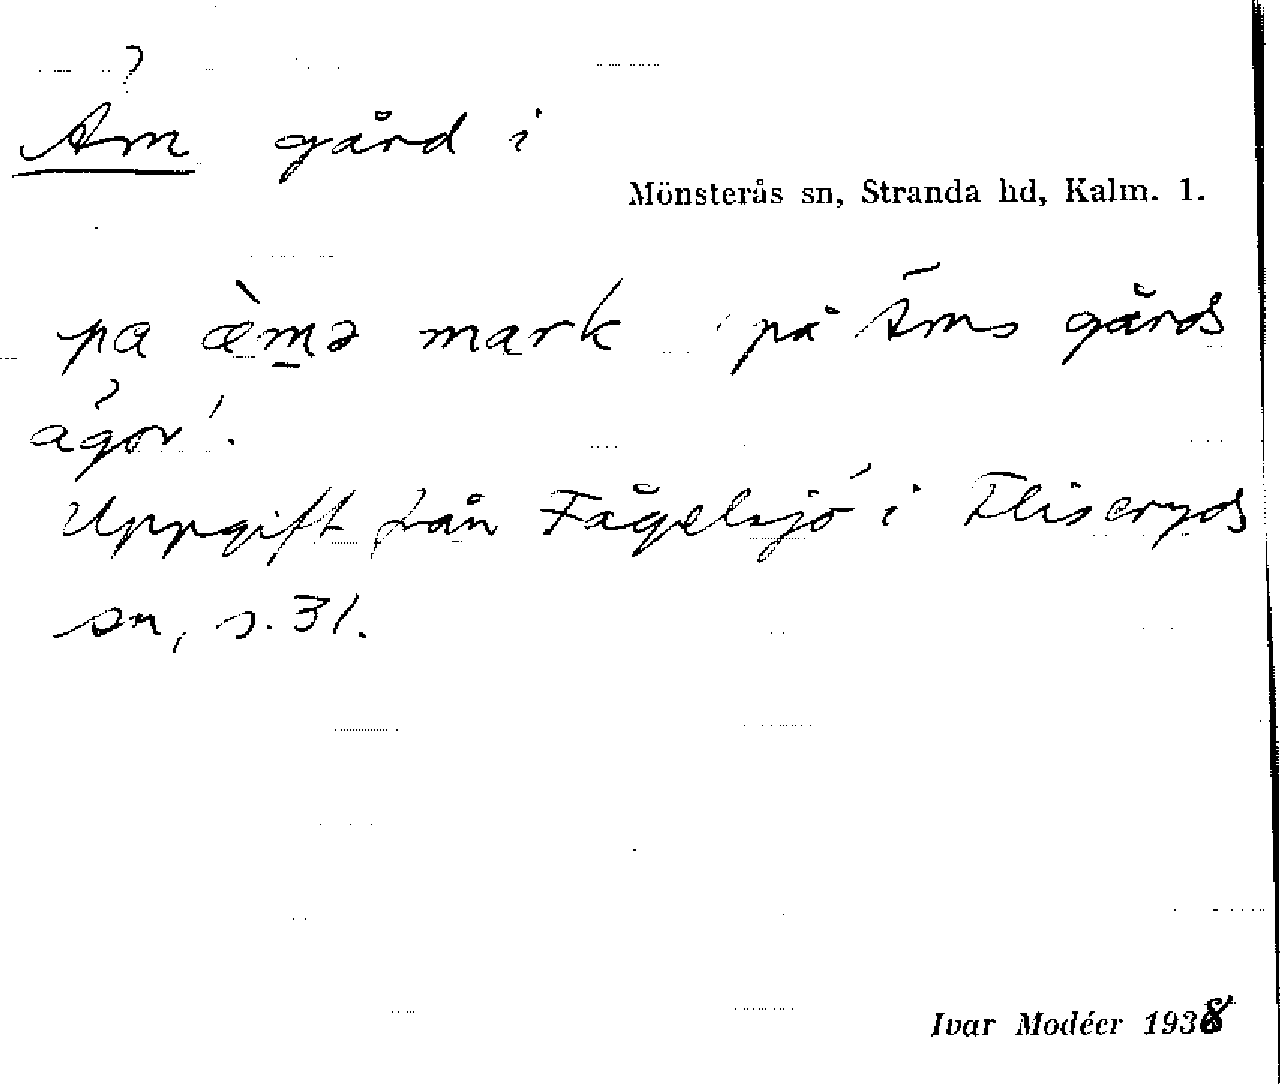 ?
Äm gård i
Mönsterås sn, Stranda hd, Kalm. l.
pa æ̀mə mark ' på Äms gårds
ägor'.
Uppgift från Fågelsjö i Fliseryds
sn, s. 31.
Ivar Modéer 1938